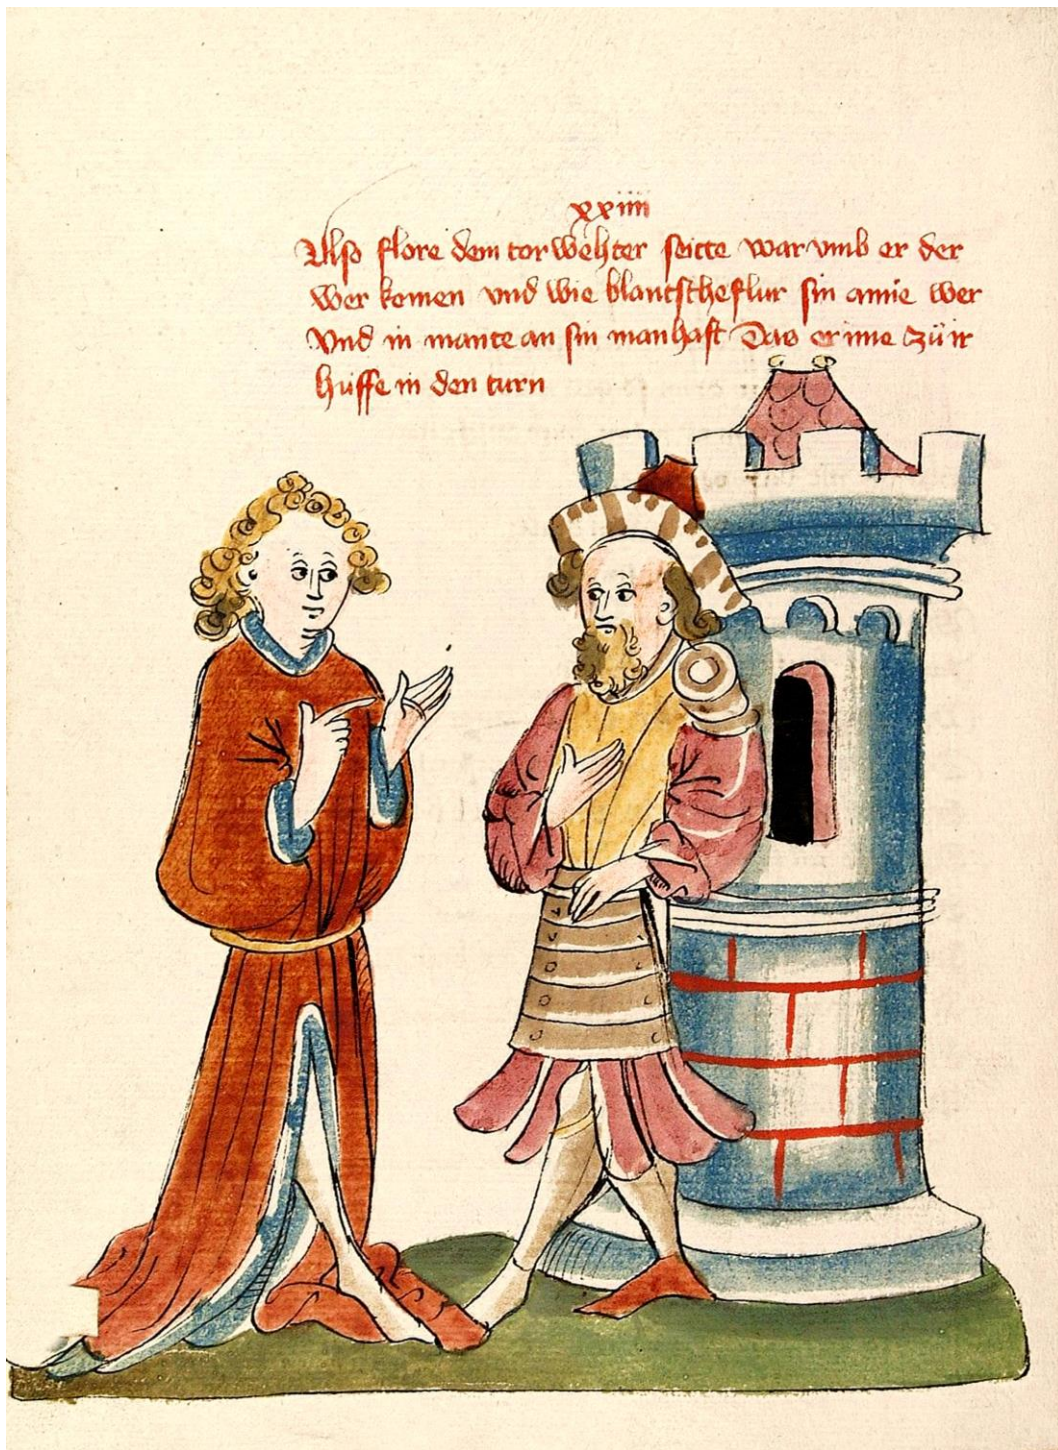 xxiiii
Also flore dem torwehter seitte war vmb er der
wer komen vnd wie blantscheflur sin amie wer
Vnd in mante an sin manhaft Das er ime zü ir
hüffe in den turn